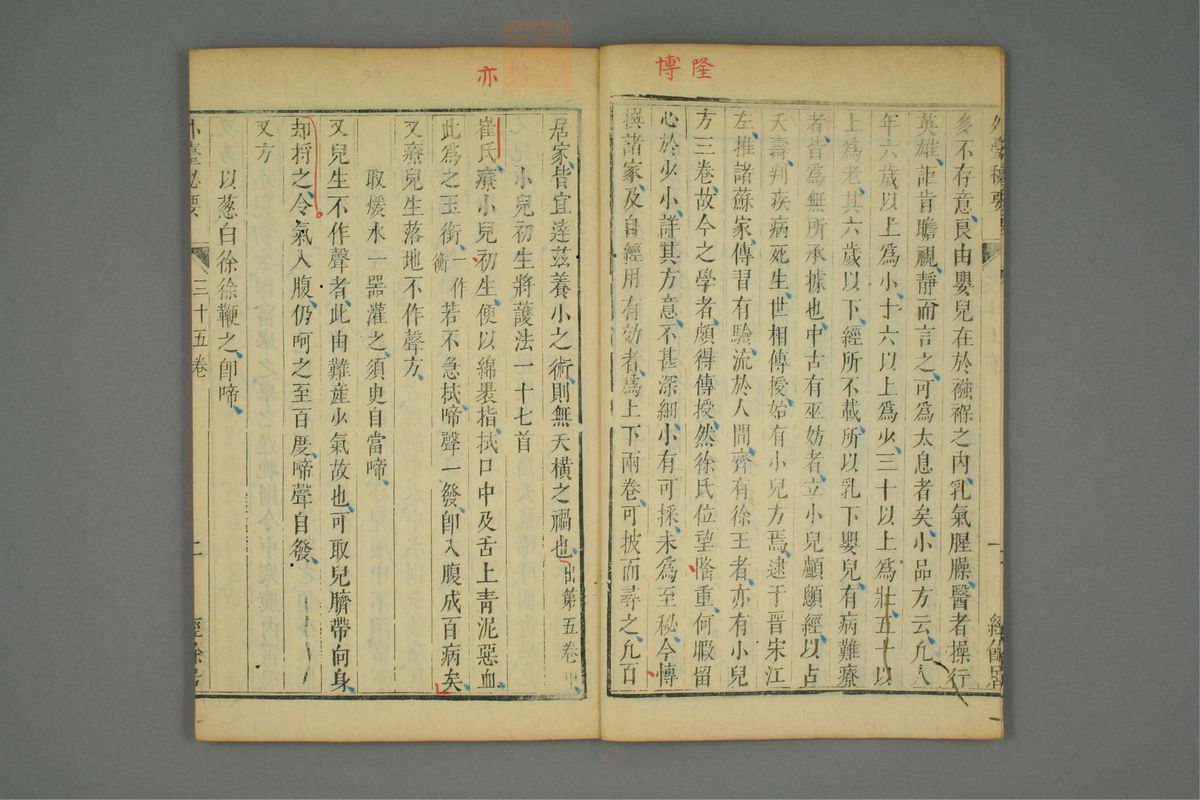 隆
博
外臺秘要
多不存意良由嬰兒在於襁褓之內乳氣腥臊醫者操行
英雄詎肯瞻視靜而言之可為太息者矣小品方云凡人
年六歲以上為小十六以上為少三十以上為壯五十以
上為老其六歲以下經所不載所以乳下嬰兒有病難療
者皆為無所承據也中古有巫妨者立小兒顱顖經以占
夭壽判疾病死生世相傳授始有小兒方焉逮于晉宋江
左推諸蘇家傳習有驗流於人間齊有徐王者亦有小兒
方三卷故今之學者頗得傳授然徐氏位望隆重何暇留
心於少小詳其方意不甚深細小有可採未為至秘今博
撰諸家及自經用有効者為上下兩卷可披而尋之凡百
亦
居家皆宜達茲養小之術則無夭橫之禍也出第五卷中
小兒初生將護法一十七首
崔氏療小兒初生便以綿褁指拭口中及舌上青泥惡血
此為之玉衘一作衡若不急拭啼聲一發卽入腹成百病矣
又療兒生落地不作聲方
取煖水一器灌之須臾自當啼
又兒生不作聲者此由難產少氣故也可取兒臍帶向身
却捋之令氣入腹仍呵之至百度啼聲自發
又方
以葱白徐徐鞭之卽啼
外臺秘要
三十五卷
二
經餘居